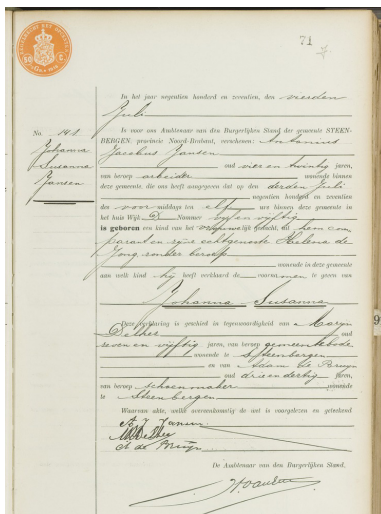 71
In het jaar negentien honderd en zeventien, den vierden
Juli
is voor ons Ambtenaar van den Burgerlijken Stand der gemeente STEEN-
BERGEN, provincie Noord-Brabant, verschenen: Antonius
Jacobus Jansen
oud vier en twintig jaren,
van beroep arbeider wonende binnen
deze gemeente, die ons heeft aangegeven dat op den derden Juli
negentien honderd en zeventien
des voor middags ten elf ure binnen deze gemeente in
het huis Wijk D Nummer en vijftig
is geboren een kind van het vrouwelijk geslacht, uit hem com-
parant en zijne echtgenoote Helena de
Jong zonder beroep
wonende in deze gemeente
aan welk kind hij heeft verklaard de voornamen te geven van
Johanna Susanna
No. 141
Johanna
Susanna
Jansen
Deze verklaring is geschied in tegenwoordigheid van Marijn
Delhez oud
zeven en vijftig jaren, van beroep gemeentebode
wonende te Steenbergen
en van Adam de Bruyn
oud drie en dertig jaren,
van beroep schoenmaker wonende
te Steenbergen
Waarvan akte, welke overeenkomstig de wet is voorgelezen en geteekend
A J Jansen
M Delhez
A de Bruyn
De Ambtenaar van den Burgerlijken Stand,